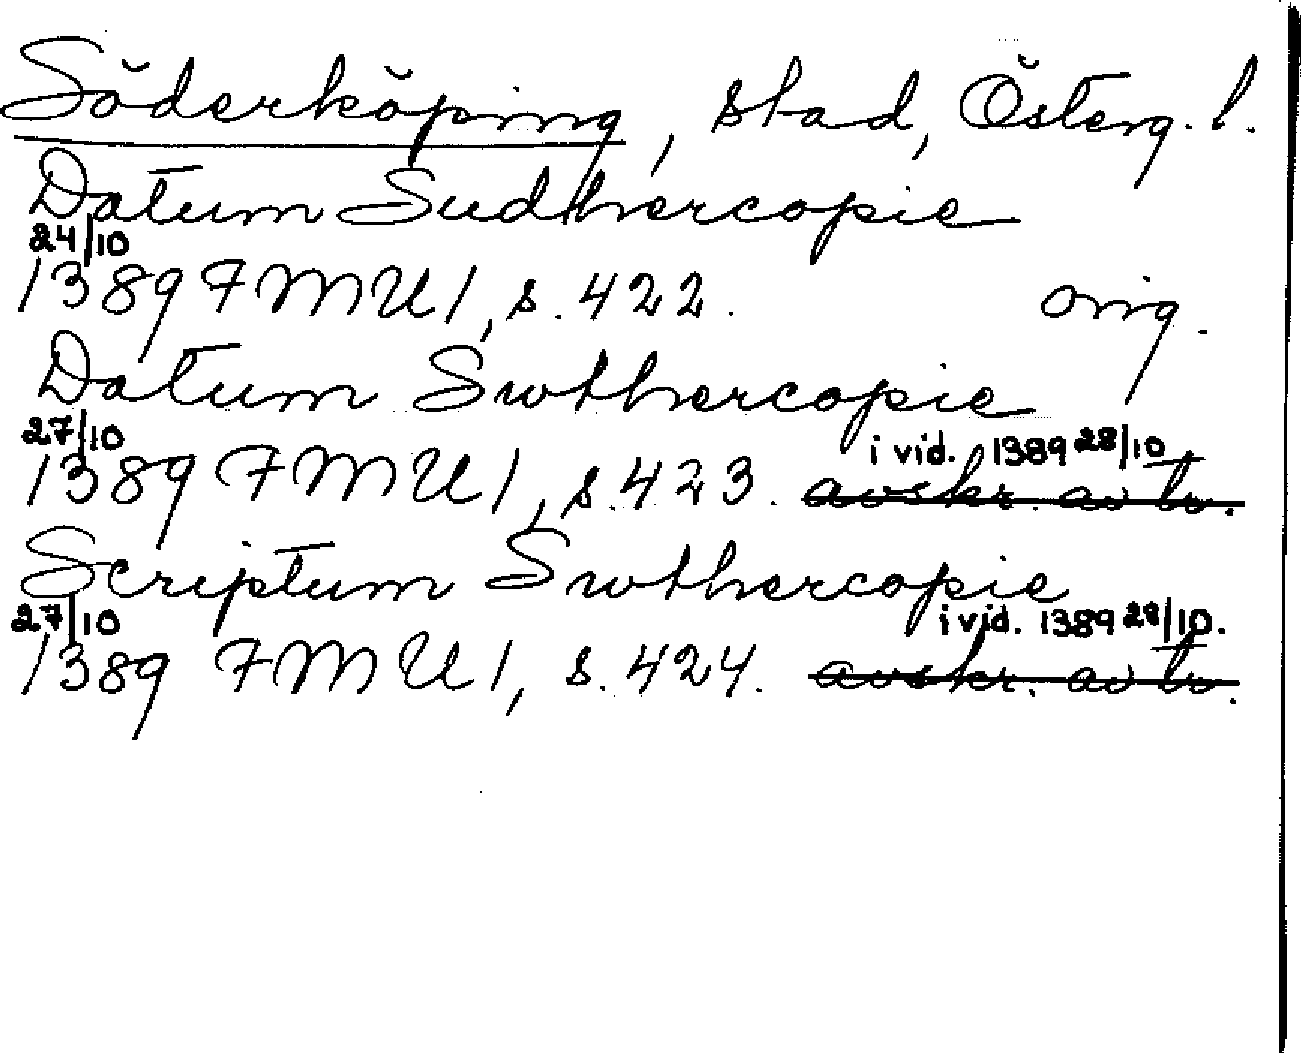 Söderköping, stad, Österg. l.
Datum Sudhercopie
24/10
1389 FMU 1, s. 422. orig.
Datum Swthercopie
27/10 i vid. 1389 28/10
1389 FMU 1, s. 423. avskr. av tr.
Scriptum Swthercopie
27/10 i vid. 1389 28/10.
1389 FMU 1, s. 424. avskr. av tr.